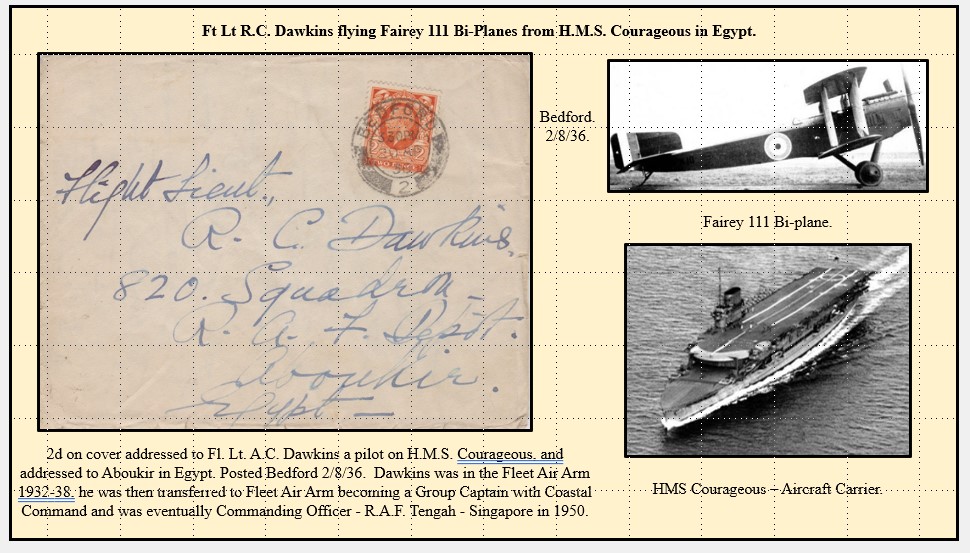 Ft Lt R.C. Dawkins flying Fairey 111 Bi-Planes from H.M.S. Courageous in Egypt.
BEDFORD
2
Flight Lieut.,
R. C. Dawkins,
820. Squadron
R. A. F. Depôt.
Aboukir.
Egypt
Bedford.
2/8/36.
Fairey 111 Bi-plane.
HMS Courageous – Aircraft Carrier.
2d on cover addressed to Fl. Lt. A.C. Dawkins a pilot on H.M.S. Courageous. and
addressed to Aboukir in Egypt. Posted Bedford 2/8/36. Dawkins was in the Fleet Air Arm
1932-38. he was then transferred to Fleet Air Arm becoming a Group Captain with Coastal
Command and was eventually Commanding Officer - R.A.F. Tengah - Singapore in 1950.